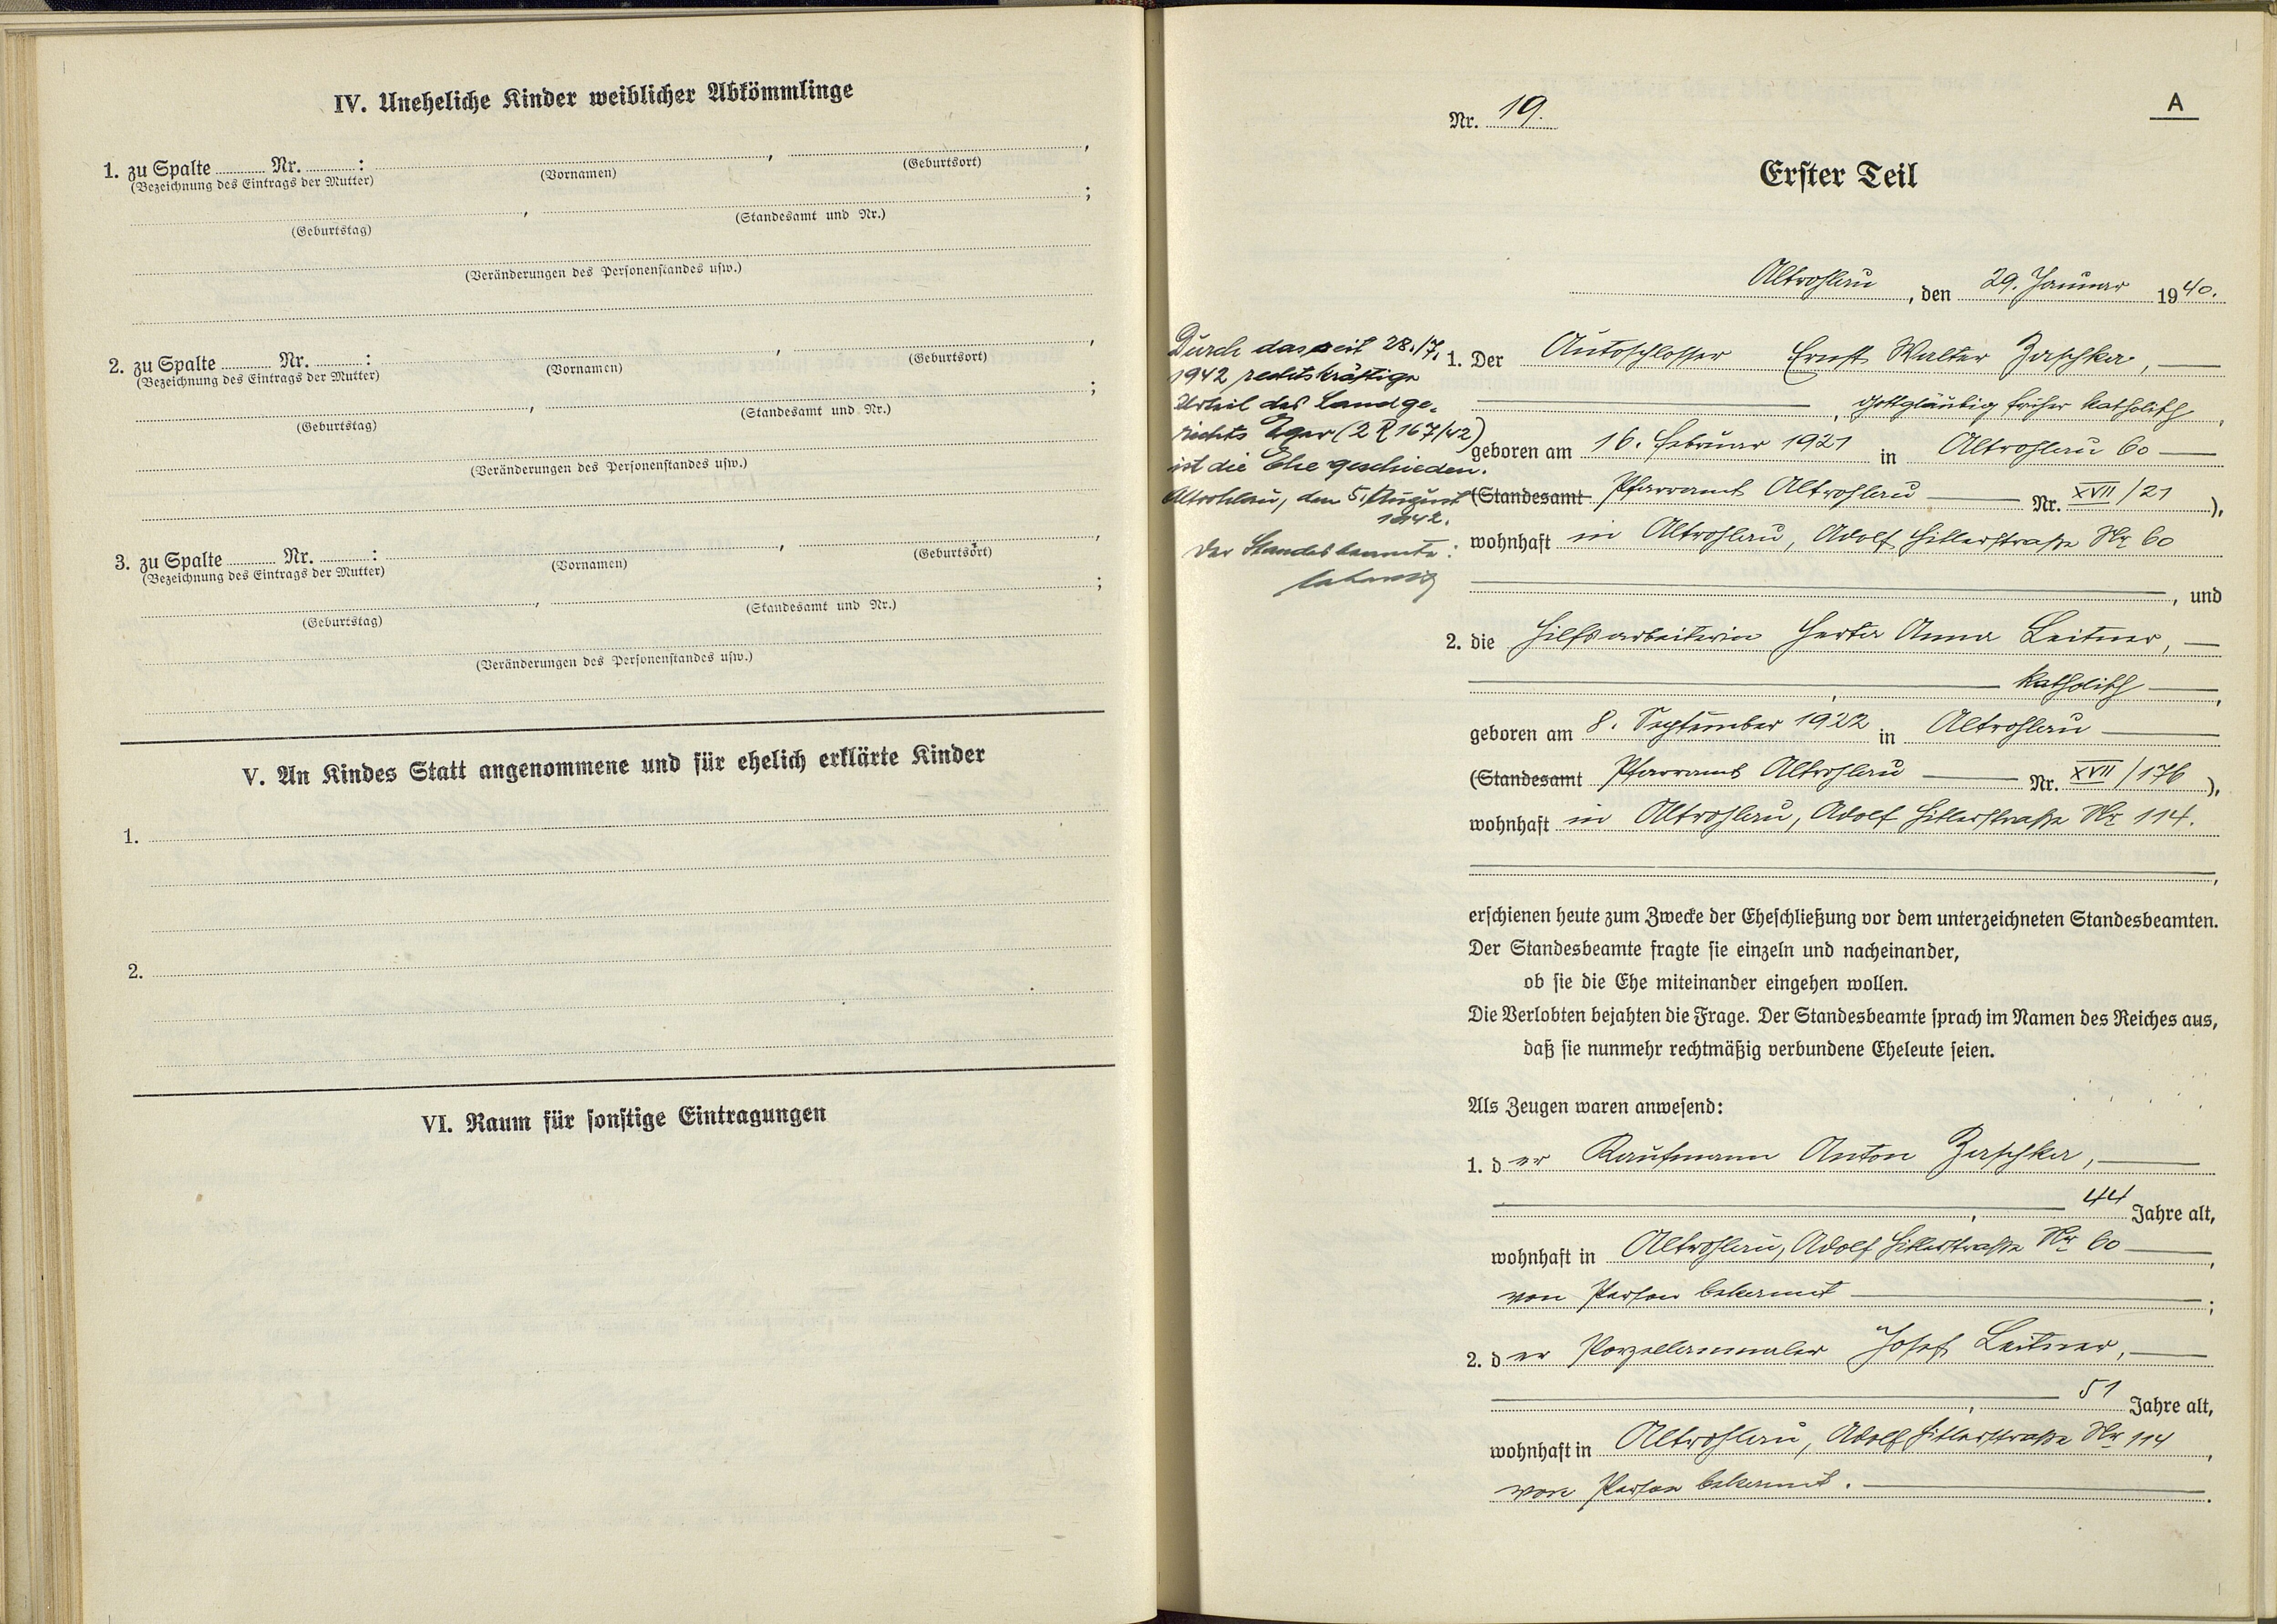 IV. Uneheliche Kinder weiblicher Abkömmlinge
1. zu Spalte ........ Nr. ........ : , ,
(Bezeichnung des Eintrags der Mutter) (Vornamen) (Geburtsort)
, ;
(Geburtstag) (Standesamt und Nr.)
(Veränderungen des Personenstandes usw.)
2. zu Spalte ........ Nr. ........ : , ,
(Bezeichnung des Eintrags der Mutter) (Vornamen) (Geburtsort)
, ;
(Geburtstag) (Standesamt und Nr.)
(Veränderungen des Personenstandes usw.)
3. zu Spalte ........ Nr. ........ : , ,
(Bezeichnung des Eintrags der Mutter) (Vornamen) (Geburtsort)
, ;
(Geburtstag) (Standesamt und Nr.)
(Veränderungen des Personenstandes usw.)
V. An Kindes Statt angenommene und für ehelich erklärte Kinder
1.
2.
VI. Raum für sonstige Eintragungen
A
Nr. 19.
Erster Teil
Altrohlau, den 29. Januar 1940.
Durch das seit 28./7.
1942 rechtskräftige
Urteil des Landge-
richts Eger (2 R 167/42)
ist die Ehe geschieden.
Altrohlau, den 5. August
1942.
Der Standesbeamte:
1. Der Autoschlosser Ernst Walter Zaschka,
, gottgläubig früher katholisch,
geboren am 16. Februar 1921 in Altrohlau 60
(Standesamt Pfarramt Altrohlau Nr. XVII/21),
wohnhaft in Altrohlau, Adolf Hitlerstraße Nr. 60
, und
2. die Hilfsarbeiterin Herta Anna Leitner,
, katholisch,
geboren am 8. September 1922 in Altrohlau
(Standesamt Pfarramt Altrohlau Nr. XVII/176),
wohnhaft in Altrohlau, Adolf Hitlerstraße Nr. 114.
,
erschienen heute zum Zwecke der Eheschließung vor dem unterzeichneten Standesbeamten.
Der Standesbeamte fragte sie einzeln und nacheinander,
ob sie die Ehe miteinander eingehen wollen.
Die Verlobten bejahten die Frage. Der Standesbeamte sprach im Namen des Reiches aus,
daß sie nunmehr rechtmäßig verbundene Eheleute seien.
Als Zeugen waren anwesend:
1. der Kaufmann Anton Zaschka,
, 44 Jahre alt,
wohnhaft in Altrohlau, Adolf Hitlerstraße Nr. 60,
von Person bekannt;
2. der Porzellanmaler Josef Leitner,
, 51 Jahre alt,
wohnhaft in Altrohlau, Adolf Hitlerstraße Nr. 114,
von Person bekannt.